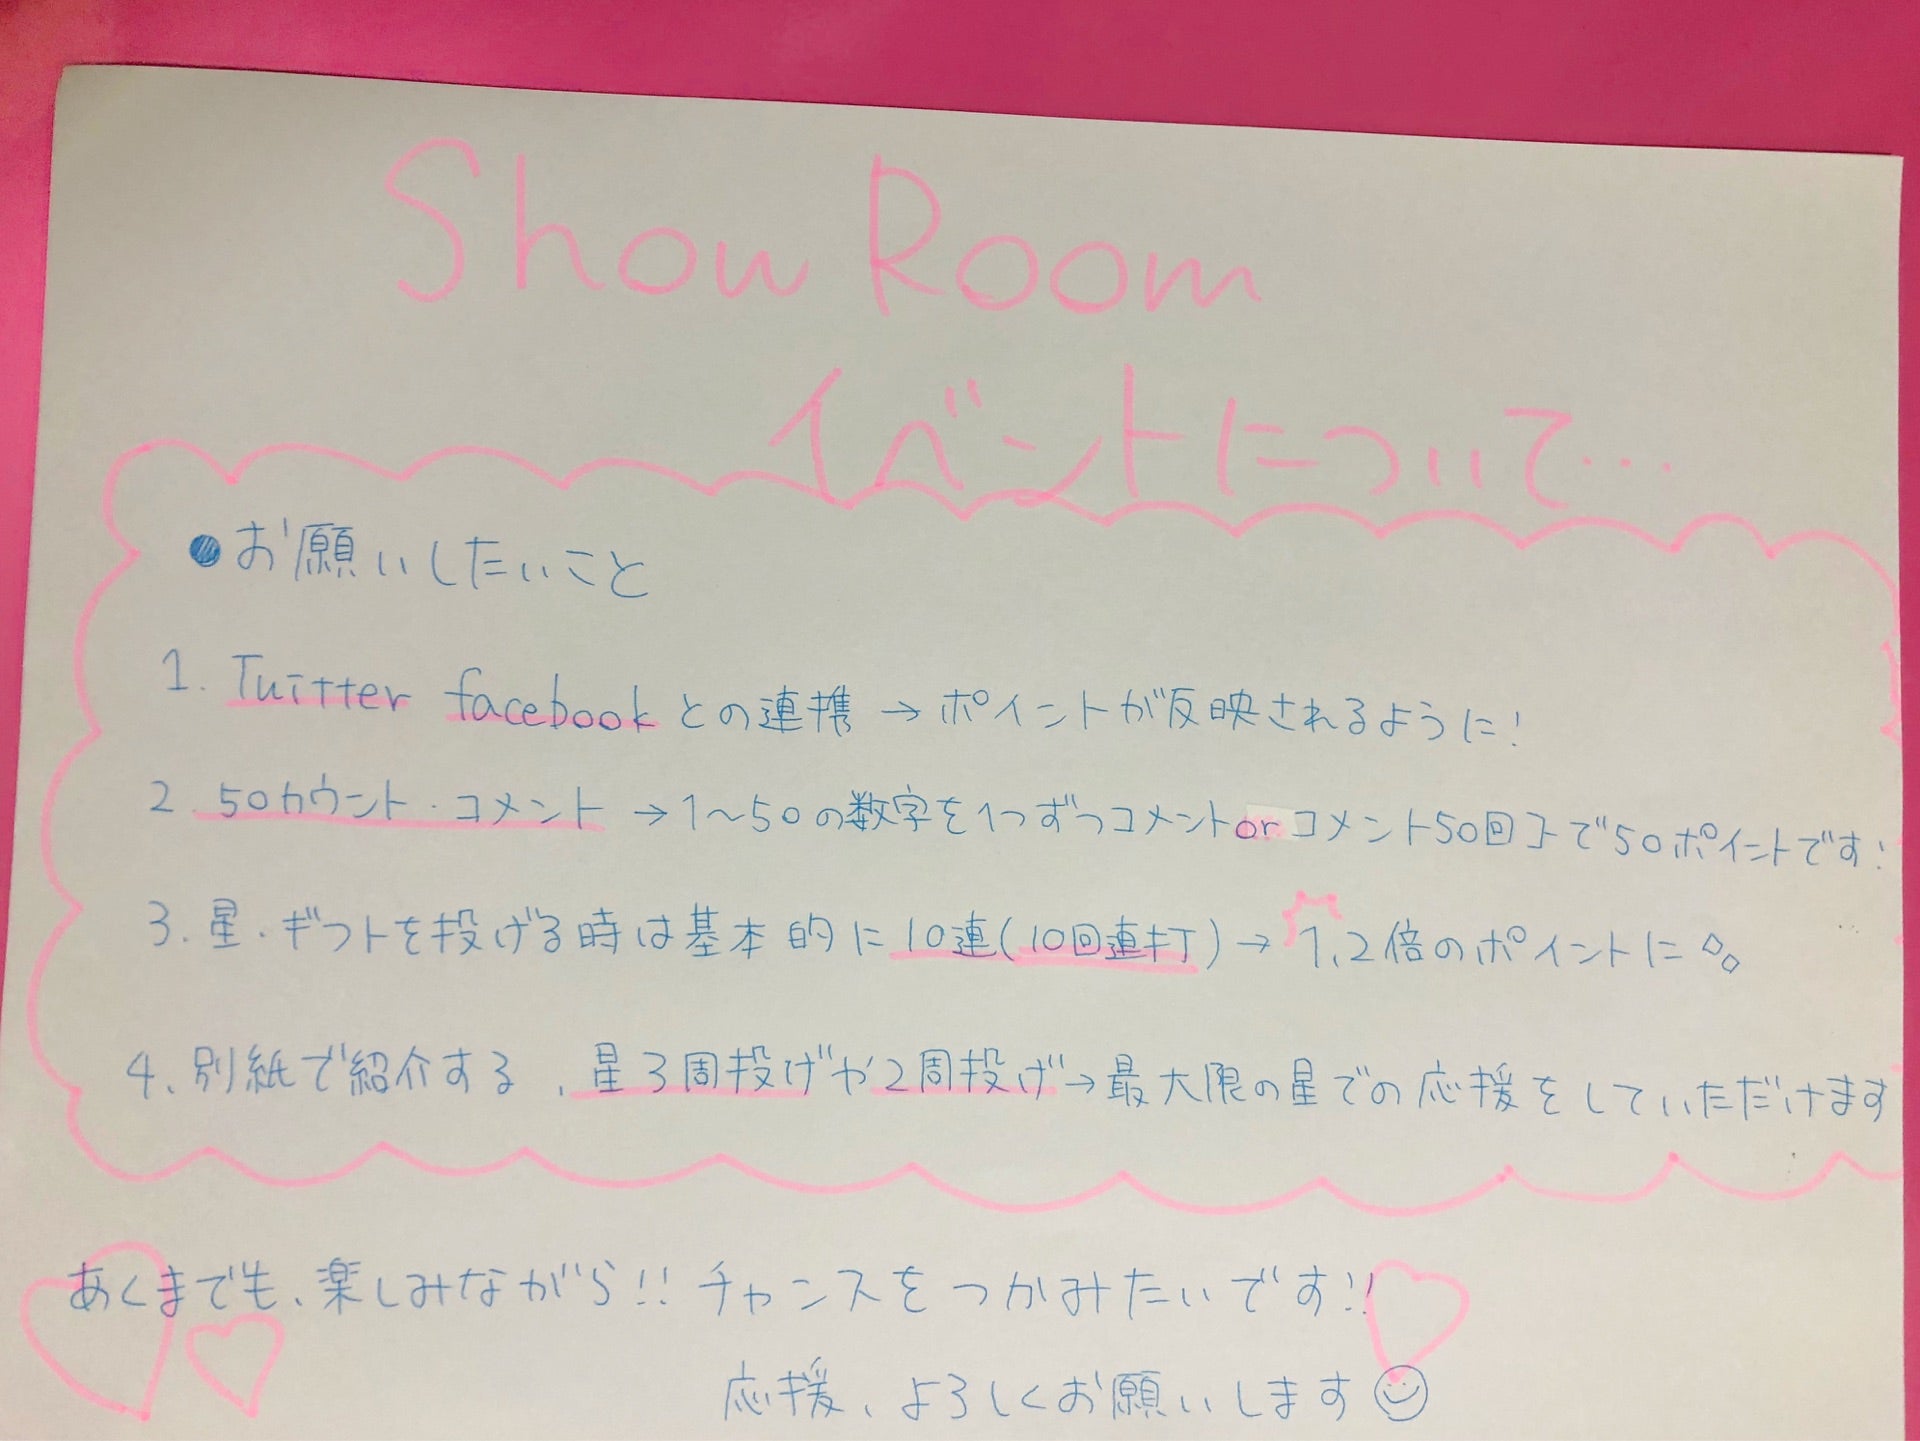 Show Room
イベントについて…
●お願いしたいこと
1. Twitter facebookとの連携 → ポイントが反映されるように!
2. 50カウント・コメント → 1〜50の数字を1つずつコメントorコメント50回で50ポイントです!
3. 星・ギフトを投げる時は基本的に10連(10回連打) → 1.2倍のポイントに
4. 別紙で紹介する、星3周投げや2周投げ→最大限の星での応援をしていただけます
あくまでも、楽しみながら!! チャンスをつかみたいです!!
応援、よろしくお願いします